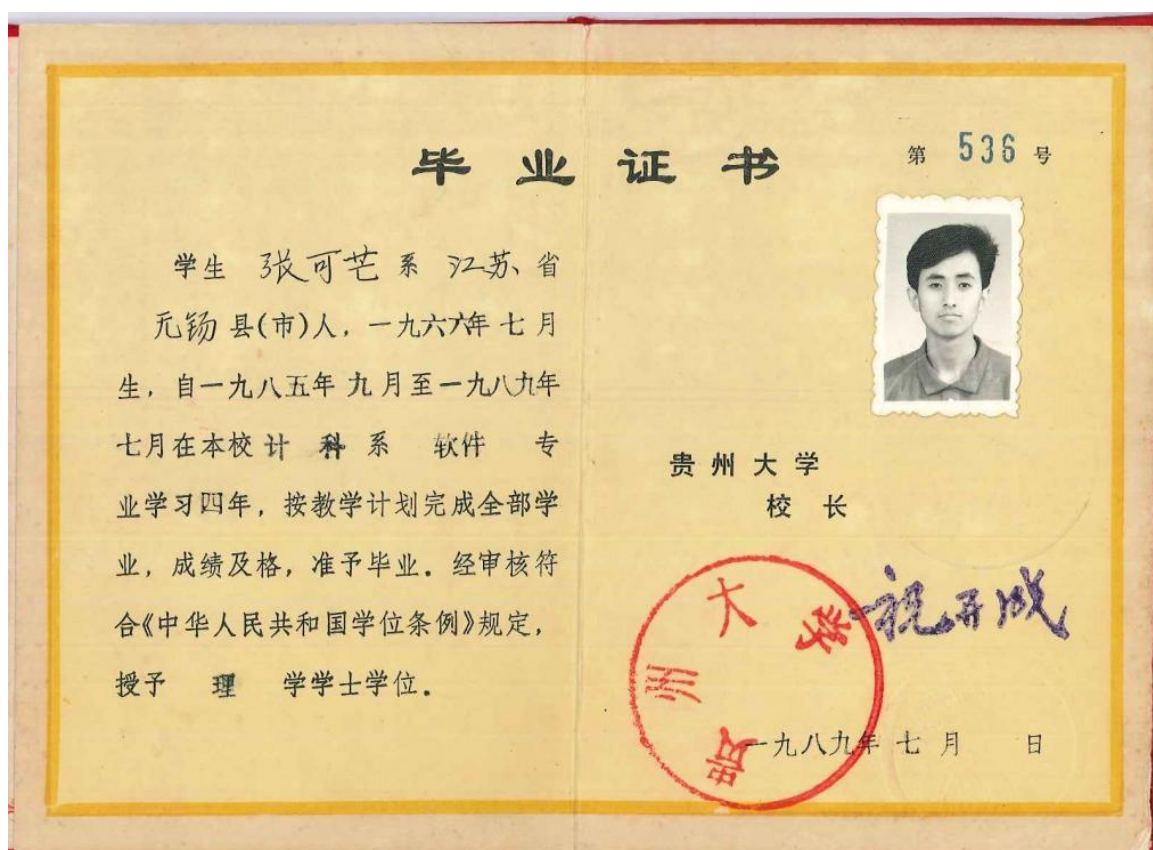 毕业证书
第 536 号
学生 张可芒 系 江苏 省
无锡 县(市)人，一九六六年 七 月
生，自一九八五年 九 月至一九八九年
七月在本校 计 科 系 软件 专
业学习四年，按教学计划完成全部学
业，成绩及格，准予毕业．经审核符
合《中华人民共和国学位条例》规定，
授予 理 学学士学位．
贵州大学
校 长
祝开成
贵州大学
一九八九年 七 月 日